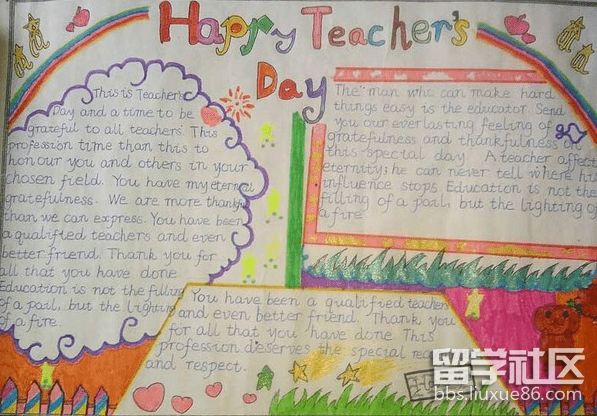 Happy Teacher's
Day
This is Teacher's
Day and a time to be
grateful to all teachers. This
profession time than this to
honour you and others in your
chosen field. You have my eternal
gratefulness. We are more thankful
than we can express. You have been
a qualified teachers and even
better friend. Thank you for
all that you have done
Education is not the filling
of a pail, but the lighting
of a fire.
The man who can make hard
things easy is the educator. Send
you our everlasting feeling of
gratefulness and thankfulness on
this special day A teacher affect
eternity; he can never tell where his
influence stops Education is not the
filling of a pail, but the lighting of
a fire
You have been a qualified teachers
and even better friend. Thank you
for all that you have done This
profession deserves the special
and respect.
留学社区
bbs.liuxue86.com